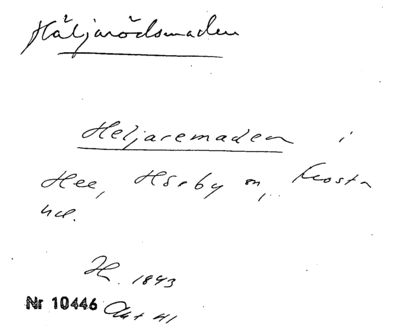 Häljarödsmaden
Heljaremaden i
Hee, Hörby sn, Frosta
hd.
H. 1843
Nr 10446 Akt 41